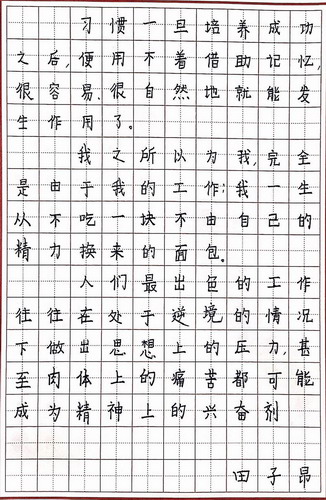 习惯一旦培养成功
之后,便用不着借助记忆,
很容易、很自然地就能发
生作用了。
我之所以为我,完全
是由于我的工作;我一生
从不吃一块不由自己的
精力换来的面包。
人们最出色的工作
往往在处于逆境的情况
下做出思想上的压力,甚
至肉体上的痛苦都可能
成为精神上的兴奋剂
田子昂